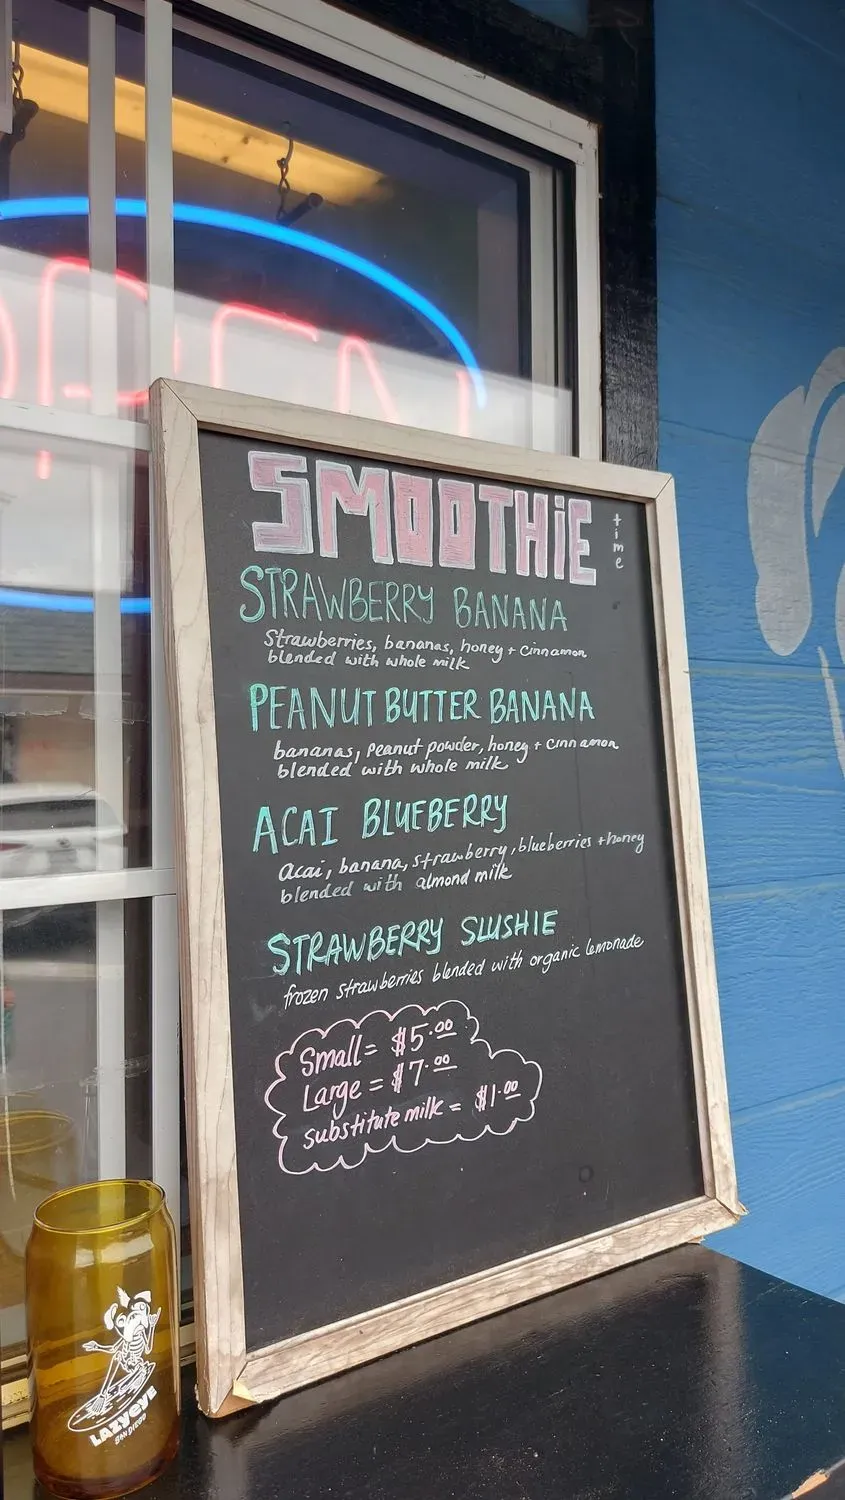 OPEN
SMOOTHIE time
STRAWBERRY BANANA
Strawberries, bananas, honey + cinnamon
blended with whole milk
PEANUT BUTTER BANANA
bananas, peanut powder, honey + cinnamon
blended with whole milk
ACAI BLUEBERRY
Acai, banana, strawberry, blueberries + honey
blended with almond milk
STRAWBERRY SLUSHIE
frozen strawberries blended with organic lemonade
Small = $5.00
Large = $7.00
substitute milk = $1.00
LAZYEYE
SAN DIEGO